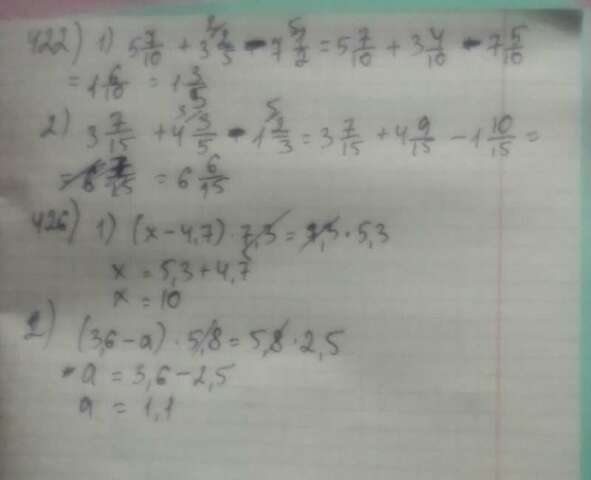 422) 1) 5 7/10 + 3 2/5 - 7 1/2 = 5 7/10 + 3 4/10 - 7 5/10
= 1 6/10 = 1 3/5
2) 3 7/15 + 4 3/5 - 1 2/3 = 3 7/15 + 4 9/15 - 1 10/15 =
= 6 6/15
426) 1) (x - 4,7) · 7,3 = 7,3 · 5,3
x = 5,3 + 4,7
x = 10
2) (3,6 - a) · 5,8 = 5,8 · 2,5
a = 3,6 - 2,5
a = 1,1